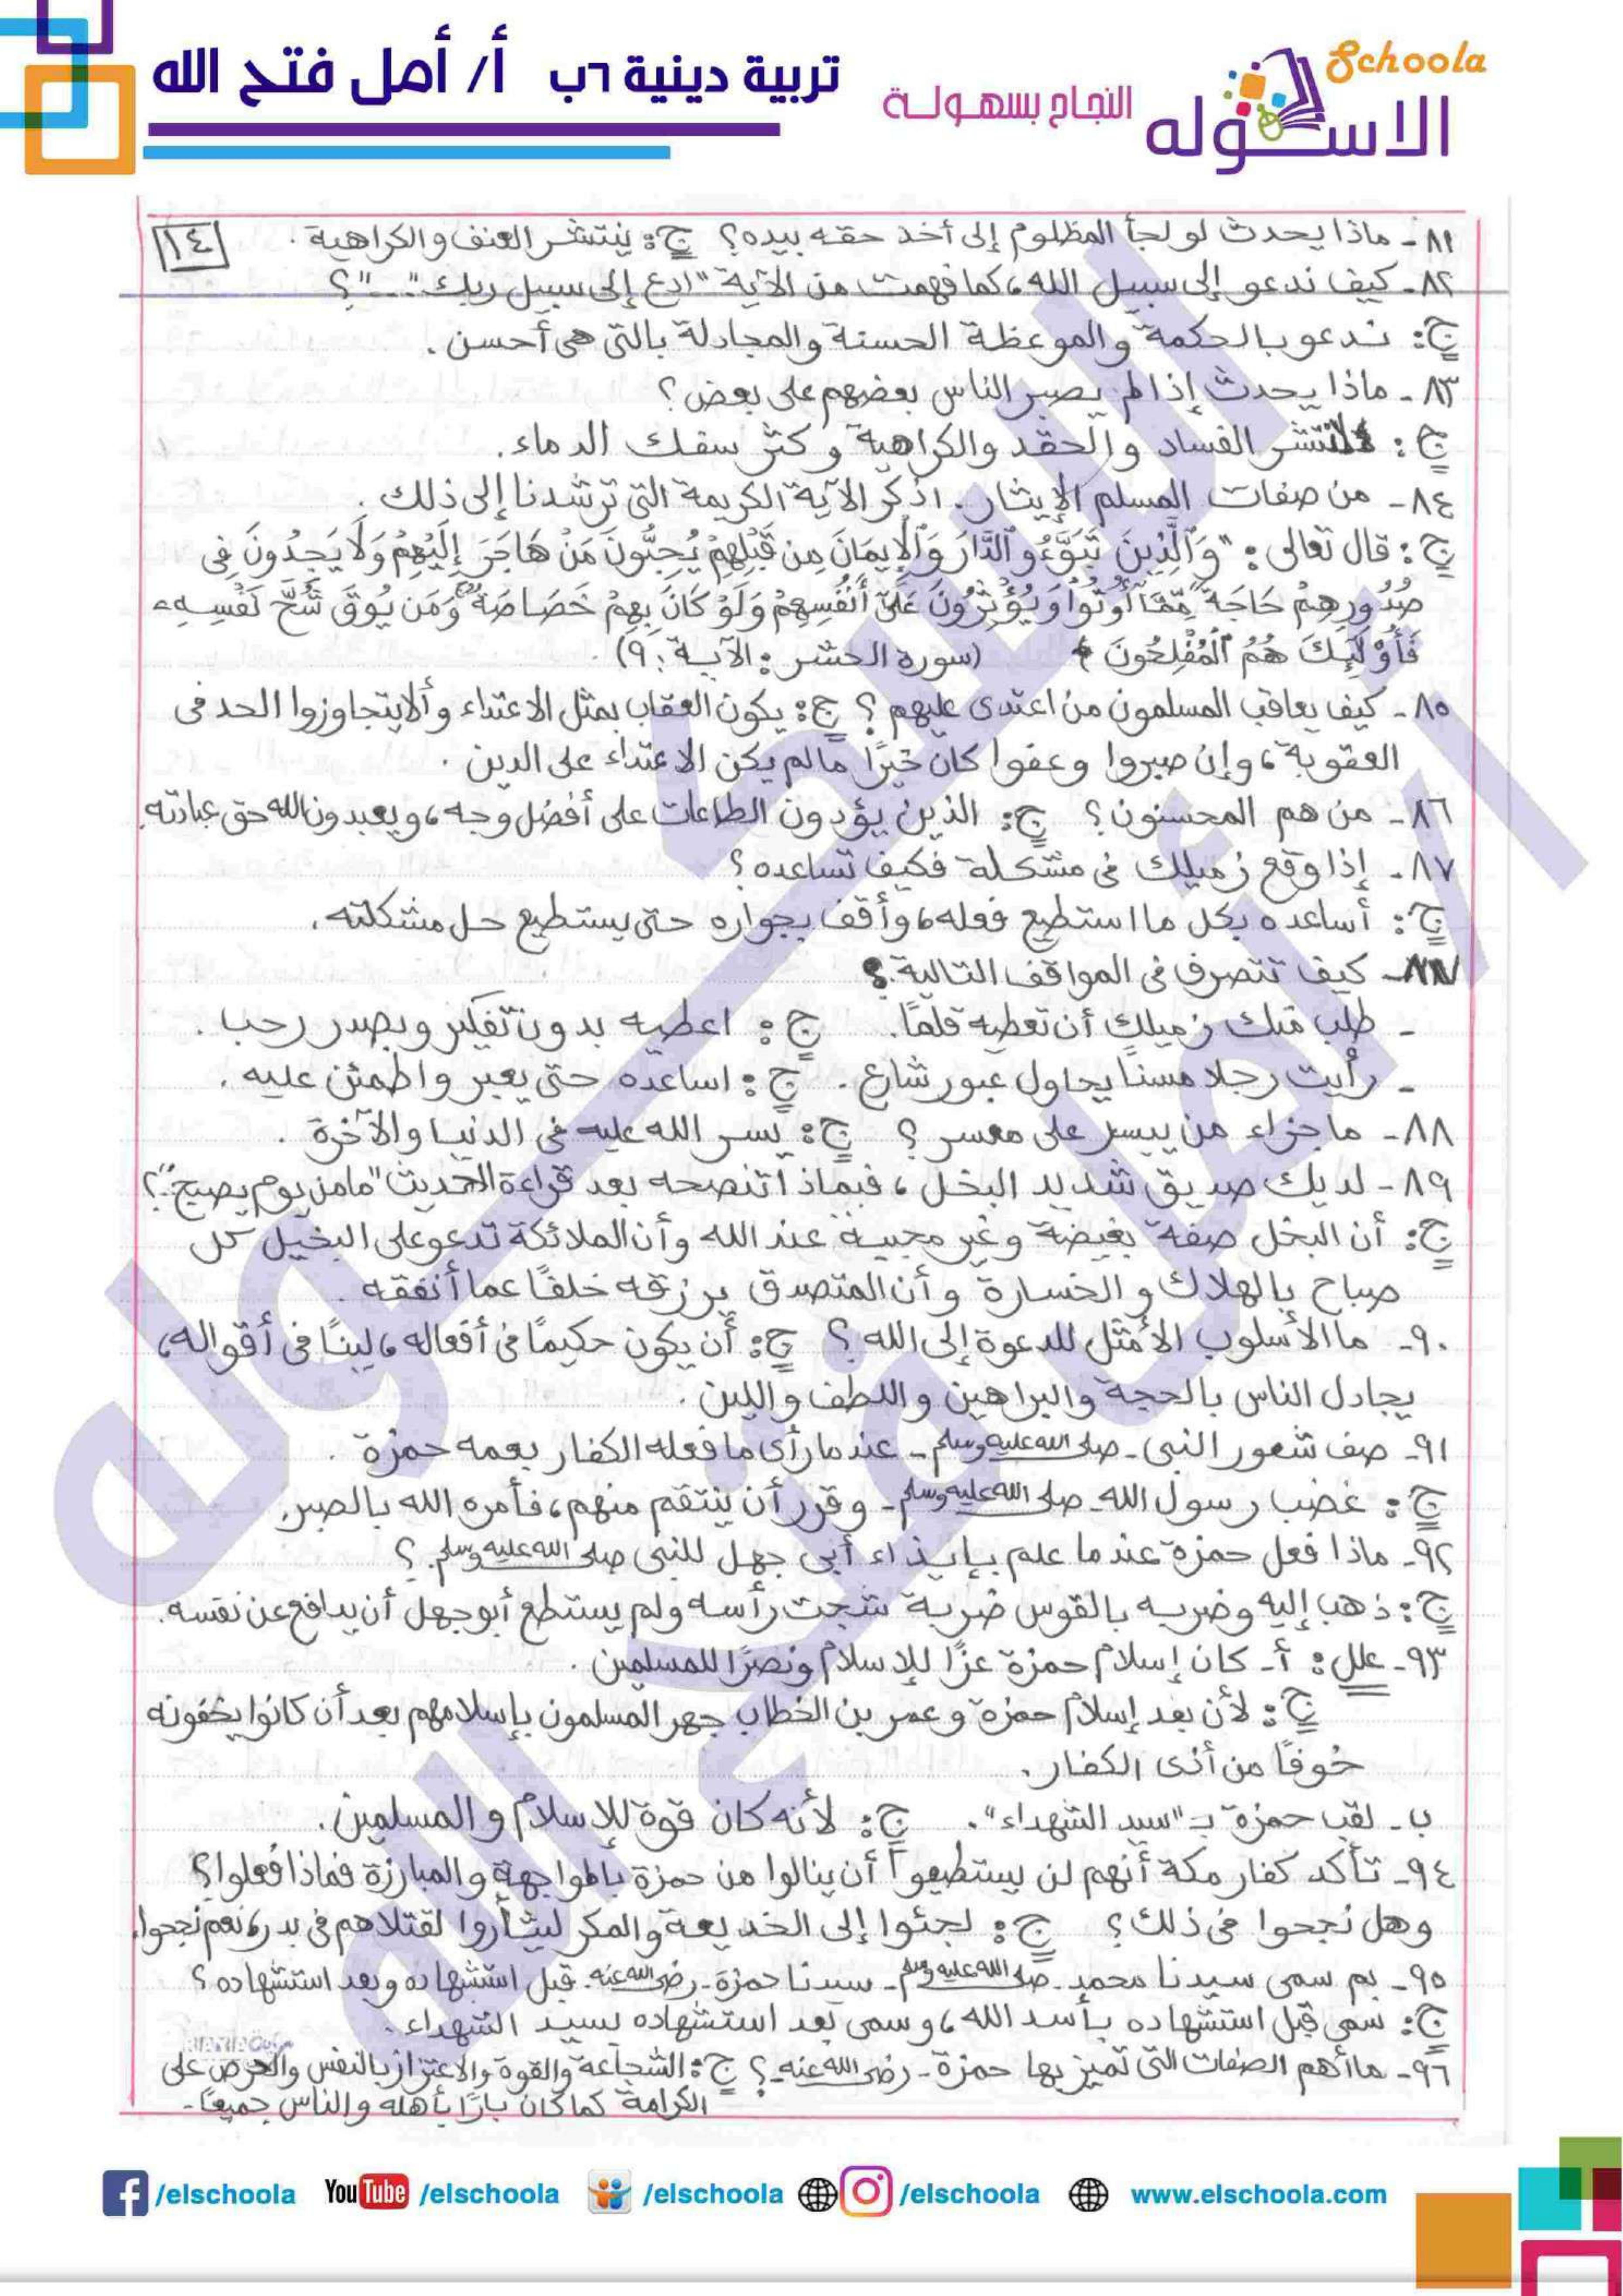 Schoola
الاسكوله
النجاح بسهولة
تربية دينية ٦ب أ/ أمل فتح الله
١٤
٨١- ماذا يحدث لو لجأ المظلوم إلى أخذ حقه بيده؟ ج: ينتشر العنف والكراهية.
٨٢- كيف ندعو إلى سبيل الله، كما فهمت من الآية "ادع إلى سبيل ربك..."؟
ج: ندعو بالحكمة والموعظة الحسنة والمجادلة بالتى هى أحسن.
٨٣- ماذا يحدث إذا لم يصبر الناس بعضهم على بعض؟
ج: لانتشر الفساد والحقد والكراهية وكثر سفك الدماء.
٨٤- من صفات المسلم الإيثار. اذكر الآية الكريمة التى ترشدنا إلى ذلك.
ج: قال تعالى: "وَٱلَّذِينَ تَبَوَّءُو ٱلدَّارَ وَٱلْإِيمَانَ مِن قَبْلِهِمْ يُحِبُّونَ مَنْ هَاجَرَ إِلَيْهِمْ وَلَا يَجِدُونَ فِى
صُدُورِهِمْ حَاجَةً مِّمَّا أُوتُوا وَيُؤْثِرُونَ عَلَىٰ أَنفُسِهِمْ وَلَوْ كَانَ بِهِمْ خَصَاصَةٌ وَمَن يُوقَ شُحَّ نَفْسِهِۦ
فَأُوْلَٰٓئِكَ هُمُ ٱلْمُفْلِحُونَ ﴾ (سورة الحشر: الآية: ٩)
٨٥- كيف يعاقب المسلمون من اعتدى عليهم؟ ج: يكون العقاب بمثل الاعتداء وألا يتجاوزوا الحد فى
العقوبة، وإن صبروا وعفوا كان خيرًا مالم يكن الاعتداء على الدين.
٨٦- من هم المحسنون؟ ج: الذين يؤدون الطاعات على أفضل وجه، ويعبدون الله حق عبادته.
٨٧- إذا وقع زميلك فى مشكلة فكيف تساعده؟
ج: أساعده بكل ما استطيع فعله، وأقف بجواره حتى يستطيع حل مشكلته.
٨٧- كيف تتصرف فى المواقف التالية؟
- طلب منك زميلك أن تعطيه قلمًا. ج: اعطيه بدون تفكير وبصدر رحب.
- رأيت رجلا مسنًا يحاول عبور شارع. ج: اساعده حتى يعبر واطمئن عليه.
٨٨- ما جزاء من ييسر على معسر؟ ج: يسر الله عليه فى الدنيا والآخرة.
٨٩- لديك صديق شديد البخل، فبماذا تنصحه بعد قراءة الحديث "مامن يوم يصبح.."؟
ج: أن البخل صفة بغيضة وغير محببة عند الله وأن الملائكة تدعو على البخيل كل
صباح بالهلاك والخسارة وأن المتصدق يرزقه خلفًا عما أنفقه.
٩٠- ما الأسلوب الأمثل للدعوة إلى الله؟ ج: أن يكون حكيمًا فى أفعاله، لينًا فى أقواله،
يجادل الناس بالحجة والبراهين واللطف واللين.
٩١- صف شعور النبى - صلى الله عليه وسلم - عندما رأى ما فعله الكفار بعمه حمزة.
ج: غضب رسول الله - صلى الله عليه وسلم - وقرر أن ينتقم منهم، فأمره الله بالصبر.
٩٢- ماذا فعل حمزة عندما علم بإيذاء أبى جهل للنبى صلى الله عليه وسلم.؟
ج: ذهب إليه وضربه بالقوس ضربة شجت رأسه ولم يستطع أبو جهل أن يدافع عن نفسه.
٩٣- علل: أ- كان إسلام حمزة عزًا للإسلام ونصرًا للمسلمين.
ج: لأن بعد إسلام حمزة وعمر بن الخطاب جهر المسلمون بإسلامهم بعد أن كانوا يخفونه
خوفًا من أذى الكفار.
ب- لقب حمزة بـ "سيد الشهداء". ج: لأنه كان قوة للإسلام والمسلمين.
٩٤- تأكد كفار مكة أنهم لن يستطيعوا أن ينالوا من حمزة بالمواجهة والمبارزة فماذا فعلوا؟
وهل نجحوا فى ذلك؟ ج: لجئوا إلى الخديعة والمكر ليثأروا لقتلاهم فى بدر، نعم نجحوا.
٩٥- بم سمى سيدنا محمد - صلى الله عليه وسلم - سيدنا حمزة - رضى الله عنه - قبل استشهاده وبعد استشهاده؟
ج: سمى قبل استشهاده بأسد الله، وسمى بعد استشهاده بسيد الشهداء.
٩٦- ما أهم الصفات التى تميز بها حمزة - رضى الله عنه -؟ ج: الشجاعة والقوة والاعتزاز بالنفس والحرص على
الكرامة كما كان بارًا بأهله والناس جميعًا.
/elschoola YouTube /elschoola /elschoola /elschoola www.elschoola.com